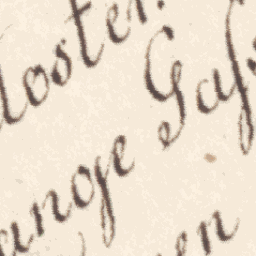 loster.
ange Gaſs
en